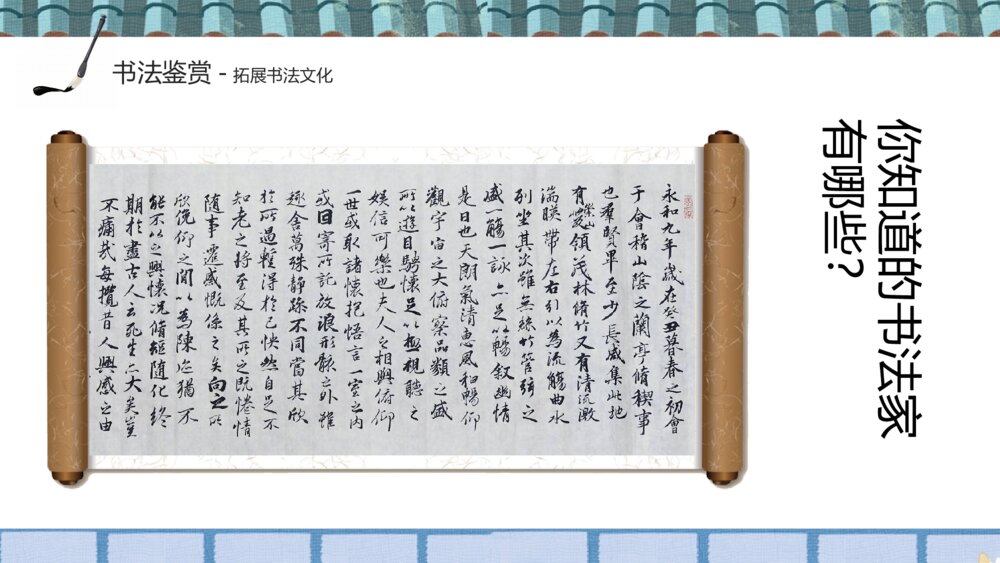 书法鉴赏 - 拓展书法文化
你知道的书法家
有哪些？
永和九年歲在癸丑暮春之初會
于會稽山陰之蘭亭脩稧事
也羣賢畢至少長咸集此地
有崇山峻領茂林脩竹又有清流激
湍暎帶左右引以為流觴曲水
列坐其次雖無絲竹管弦之
盛一觴一詠亦足以暢叙幽情
是日也天朗氣清惠風和暢仰
觀宇宙之大俯察品類之盛
所以遊目騁懷足以極視聽之
娛信可樂也夫人之相與俯仰
一世或取諸懷抱悟言一室之內
或因寄所託放浪形骸之外雖
趣舍萬殊靜躁不同當其欣
於所遇蹔得於己怏然自足不
知老之將至及其所之既惓情
隨事遷感慨係之矣向之所
欣俛仰之閒以為陳迹猶不
能不以之興懷況脩短隨化終
期於盡古人云死生亦大矣豈
不痛哉每攬昔人興感之由